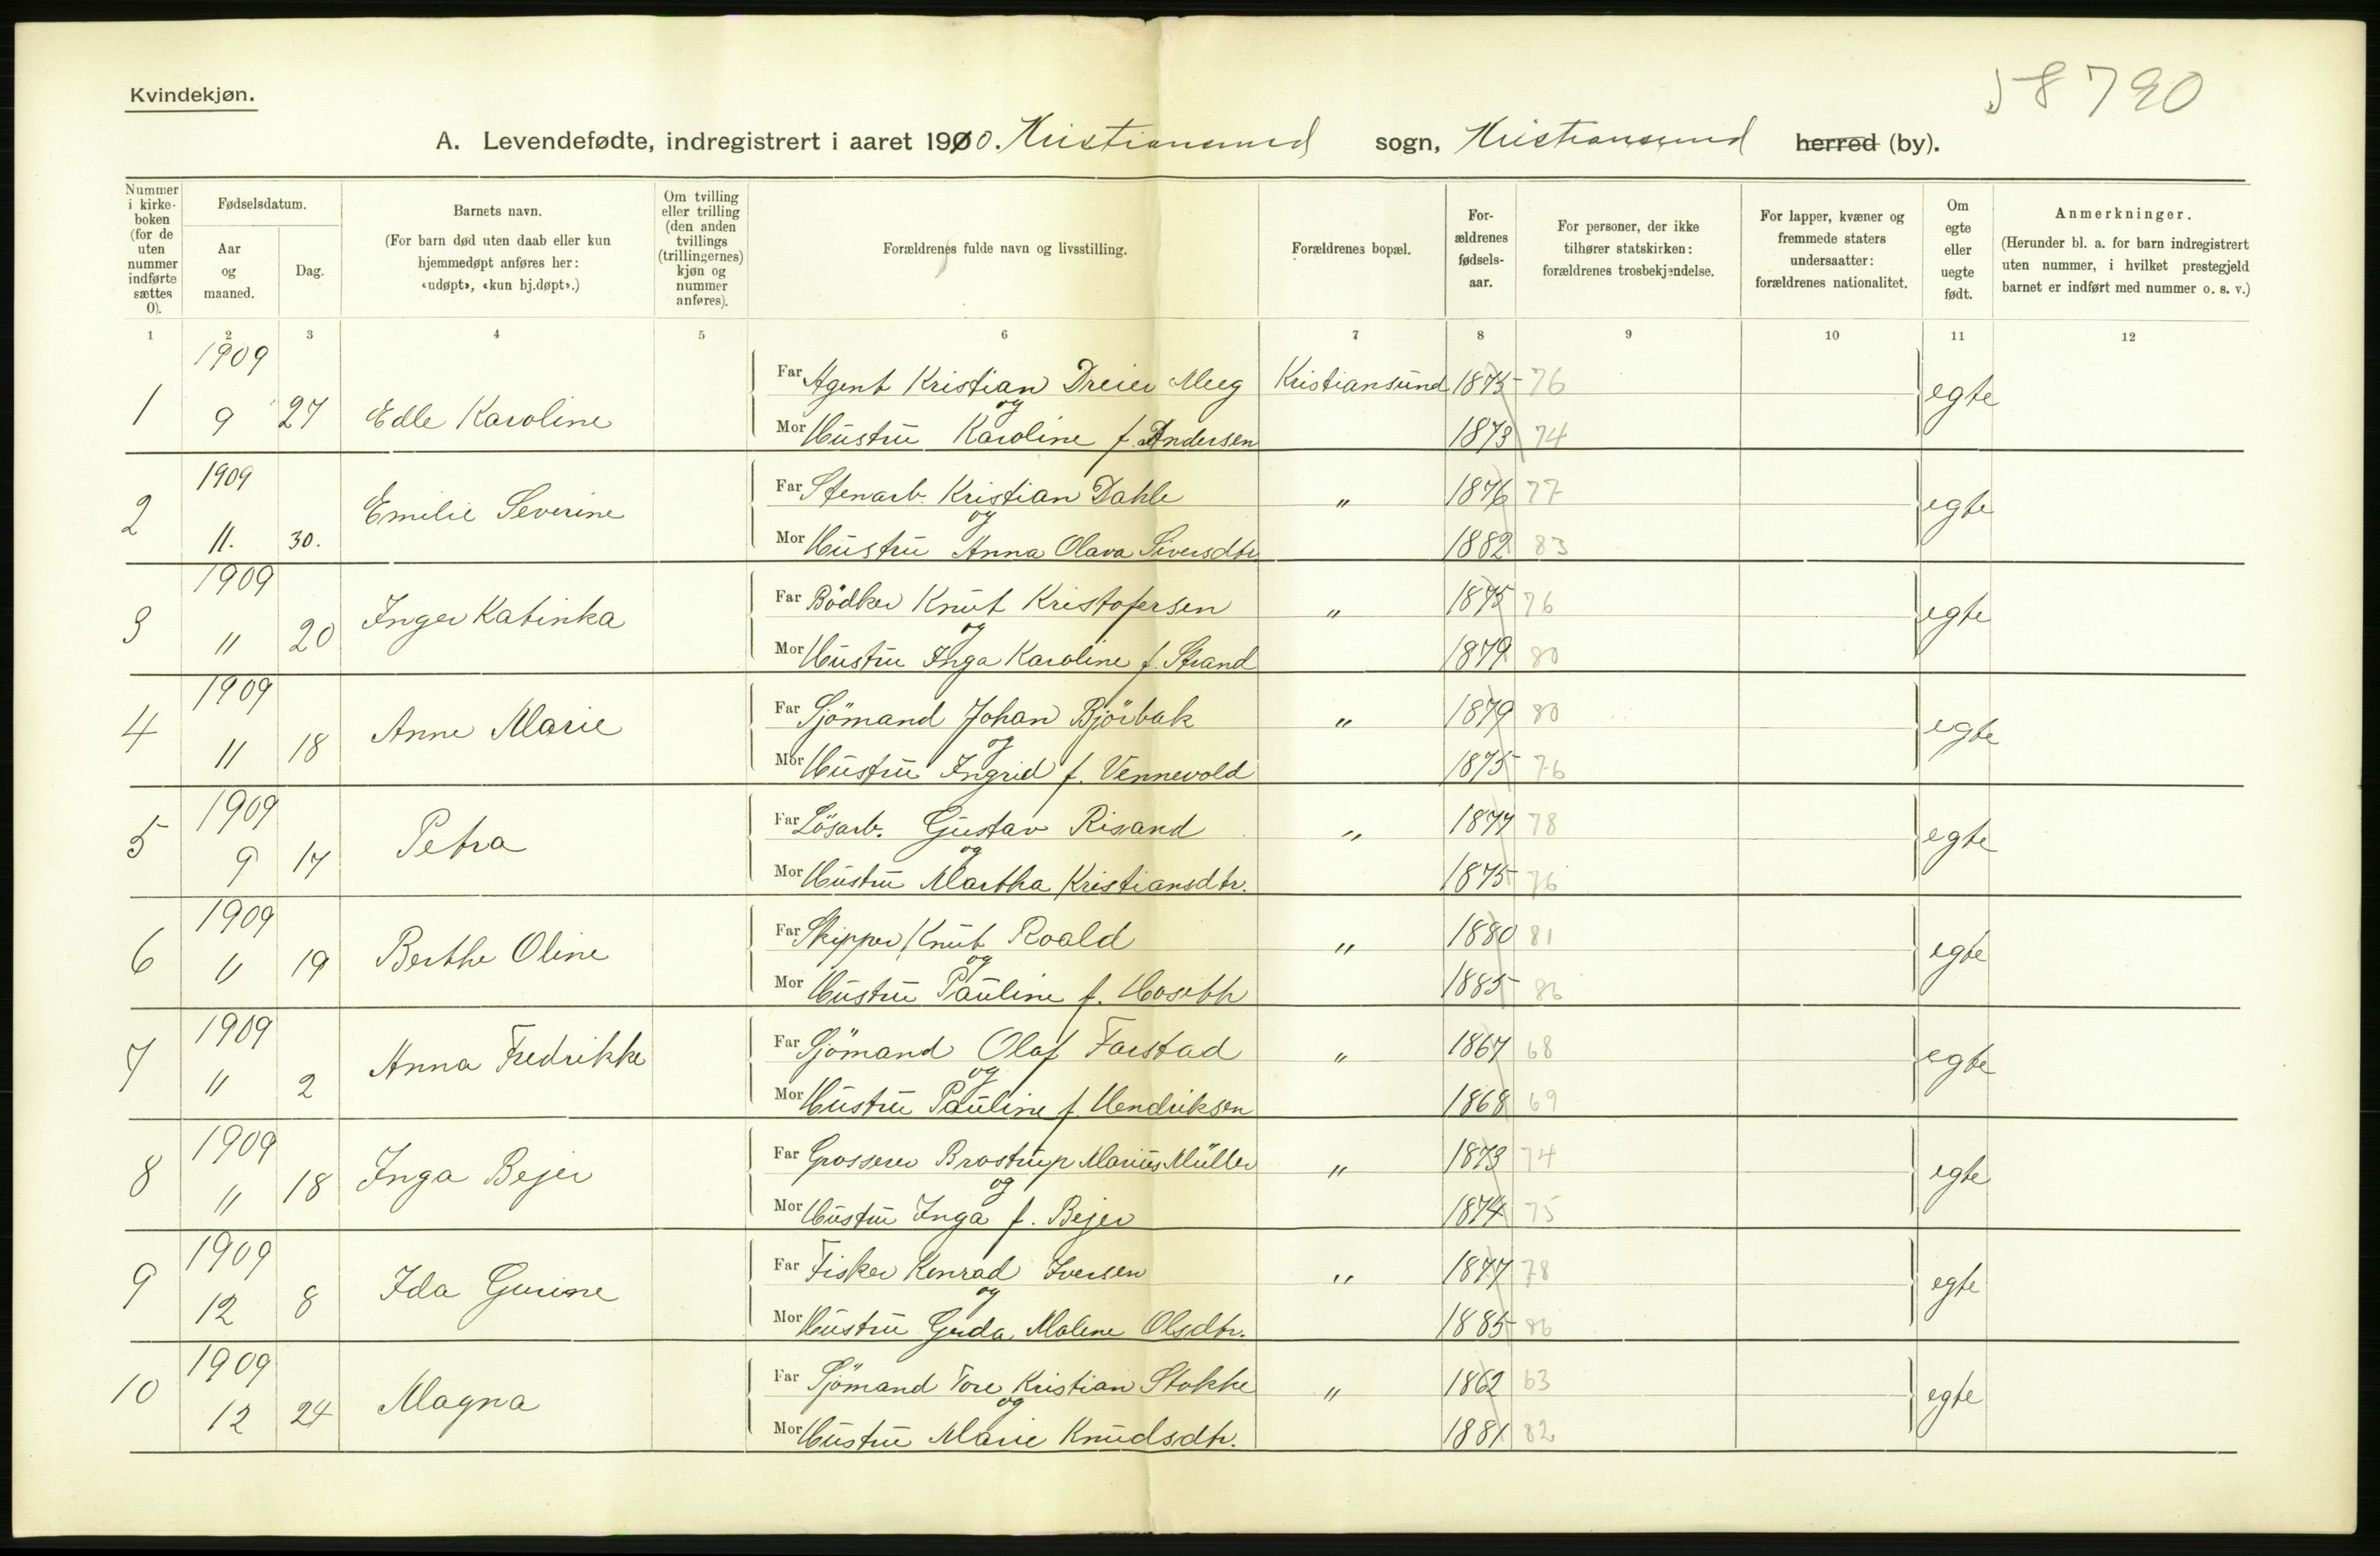 58790
Kvindekjøn.
A. Levendefødte, indregistrert i aaret 1910. Kristiansund sogn, Kristiansund herred (by).
Nummer i kirkeboken (for de uten nummer indførte sættes 0).
Fødselsdatum.
Aar og maaned.
Dag.
Barnets navn.
(For barn død uten daab eller kun hjemmedøpt anføres her: «udøpt», «kun hj.døpt».)
Om tvilling eller trilling (den anden tvillings (trillingernes) kjøn og nummer anføres).
Forældrenes fulde navn og livsstilling.
Forældrenes bopæl.
Forældrenes fødselsaar.
For personer, der ikke tilhører statskirken: forældrenes trosbekjendelse.
For lapper, kvæner og fremmede staters undersaatter: forældrenes nationalitet.
Om egte eller uegte født.
Anmerkninger.
(Herunder bl. a. for barn indregistrert uten nummer, i hvilket prestegjeld barnet er indført med nummer o. s. v.)
1 2 3 4 5 6 7 8 9 10 11 12
1909
Far Agent Kristian Dreier Meeg Kristiansund 1875 76
1 9 27 Edle Karoline og egte
Mor Hustru Karoline f. Andersen 1873 74
1909
Far Stenarb. Kristian Dahle " 1876 77
2 11. 30. Emilie Severine og egte
Mor Hustru Anna Olava Siversdtr 1882 83
1909
Far Bödker Knut Kristofersen " 1875 76
3 11 20 Inger Katinka og egte
Mor Hustru Inga Karoline f. Strand 1879 80
1909
Far Sjömand Johan Bjørbak " 1879 80
4 11 18 Anne Marie og egte
Mor Hustru Ingrid f. Vennevold 1875 76
1909
Far Lösarb. Gustav Risand " 1877 78
5 9 17 Petra og egte
Mor Hustru Martha Kristiansdtr. 1875 76
1909
Far Skipper Knut Roald " 1880 81
6 11 19 Berthe Oline og egte
Mor Hustru Pauline f. Hoseth 1885 86
1909
Far Sjömand Olaf Farstad " 1867 68
7 11 2 Anna Fredrikke og egte
Mor Hustru Pauline f. Hendriksen 1868 69
1909
Far Grosserer Brostrup Marius Müller " 1873 74
8 11 18 Inga Bejer og egte
Mor Hustru Inga f. Bejer 1874 75
1909
Far Fisker Konrad Iversen " 1877 78
9 12 8 Ida Gurine og egte
Mor Hustru Gerda Malene Olsdtr. 1885 86
1909
Far Sjömand Tore Kristian Stokke " 1862 63
10 12 24 Magna og egte
Mor Hustru Marie Knudsdtr. 1881 82